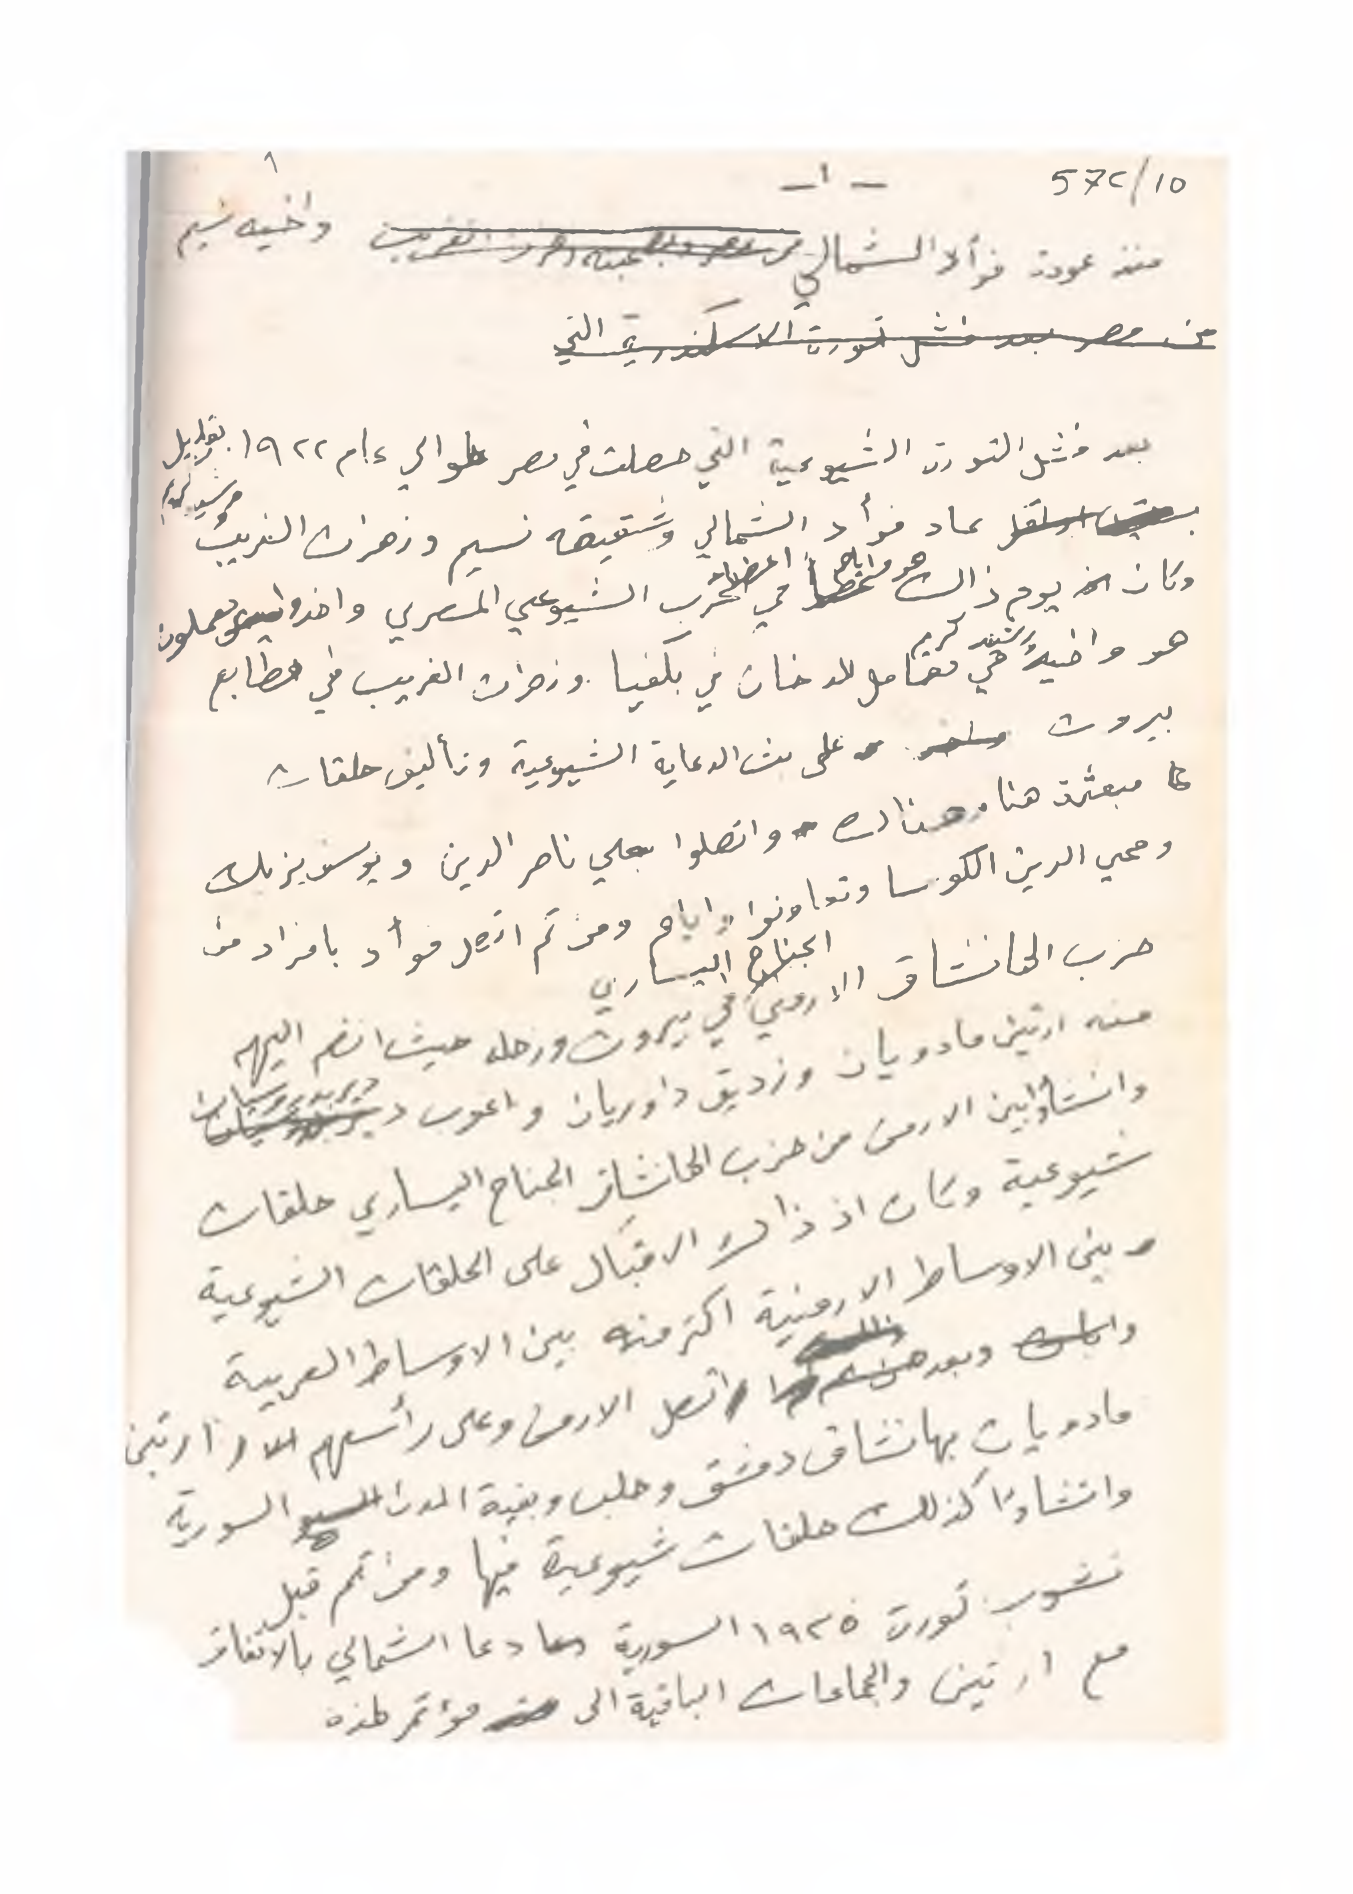 572/10
- ١ -
١
منذ عودة فوأد الشمالي واخيه نسيم
من مصر بعد فشل ثورة الاسكندرية التي
بعد فشل الثورة الشيوعية التي حصلت في مصر حوالي عام ١٩٢٢ بقليل
عاد فوأد الشمالي وشقيقه نسيم وزهرات الغريب
وكان يوم ذالك هو واياهم اعضاء في الحزب الشيوعي المصري واخذوا يعملون
هو واخيه رشيد كرم في معامل للدخان في بكفيا وزهرات الغريب في مطابع
بيروت على بث الدعاية الشيوعية وتأليف حلقات
مبعثرة هنا وهنالك واتصلوا بعلي ناصر الدين ويوسف يزبك
ومحي الدين الكوسا وتعاونوا واياهم ومن ثم اتصل فوأد بافراد من
حزب الهانشاق الارمني الجناح اليساري في بيروت وزحله حيث انضم اليهم
منه ارتين مادويان وزديق داوريان واغوب
وانشاؤا بين الارمن من حزب الهانشاق الجناح اليساري حلقات
شيوعية وكان اذ ذالك الاقبال على الحلقات الشيوعية
بين الاوساط الارمنية اكثر منه بين الاوساط العربية
وبعد اتصل الارمن وعلى رأسهم ارتين
مادويان بهانشاق دمشق وحلب وبقية المدن السورية
وانشاؤا كذلك حلقات شيوعية فيها ومن ثم قبل
نشوب ثورة ١٩٢٥ السورية دعا الشمالي بالاتفاق
مع ارتين والجماعات الباقية الى مؤتمر لهذه